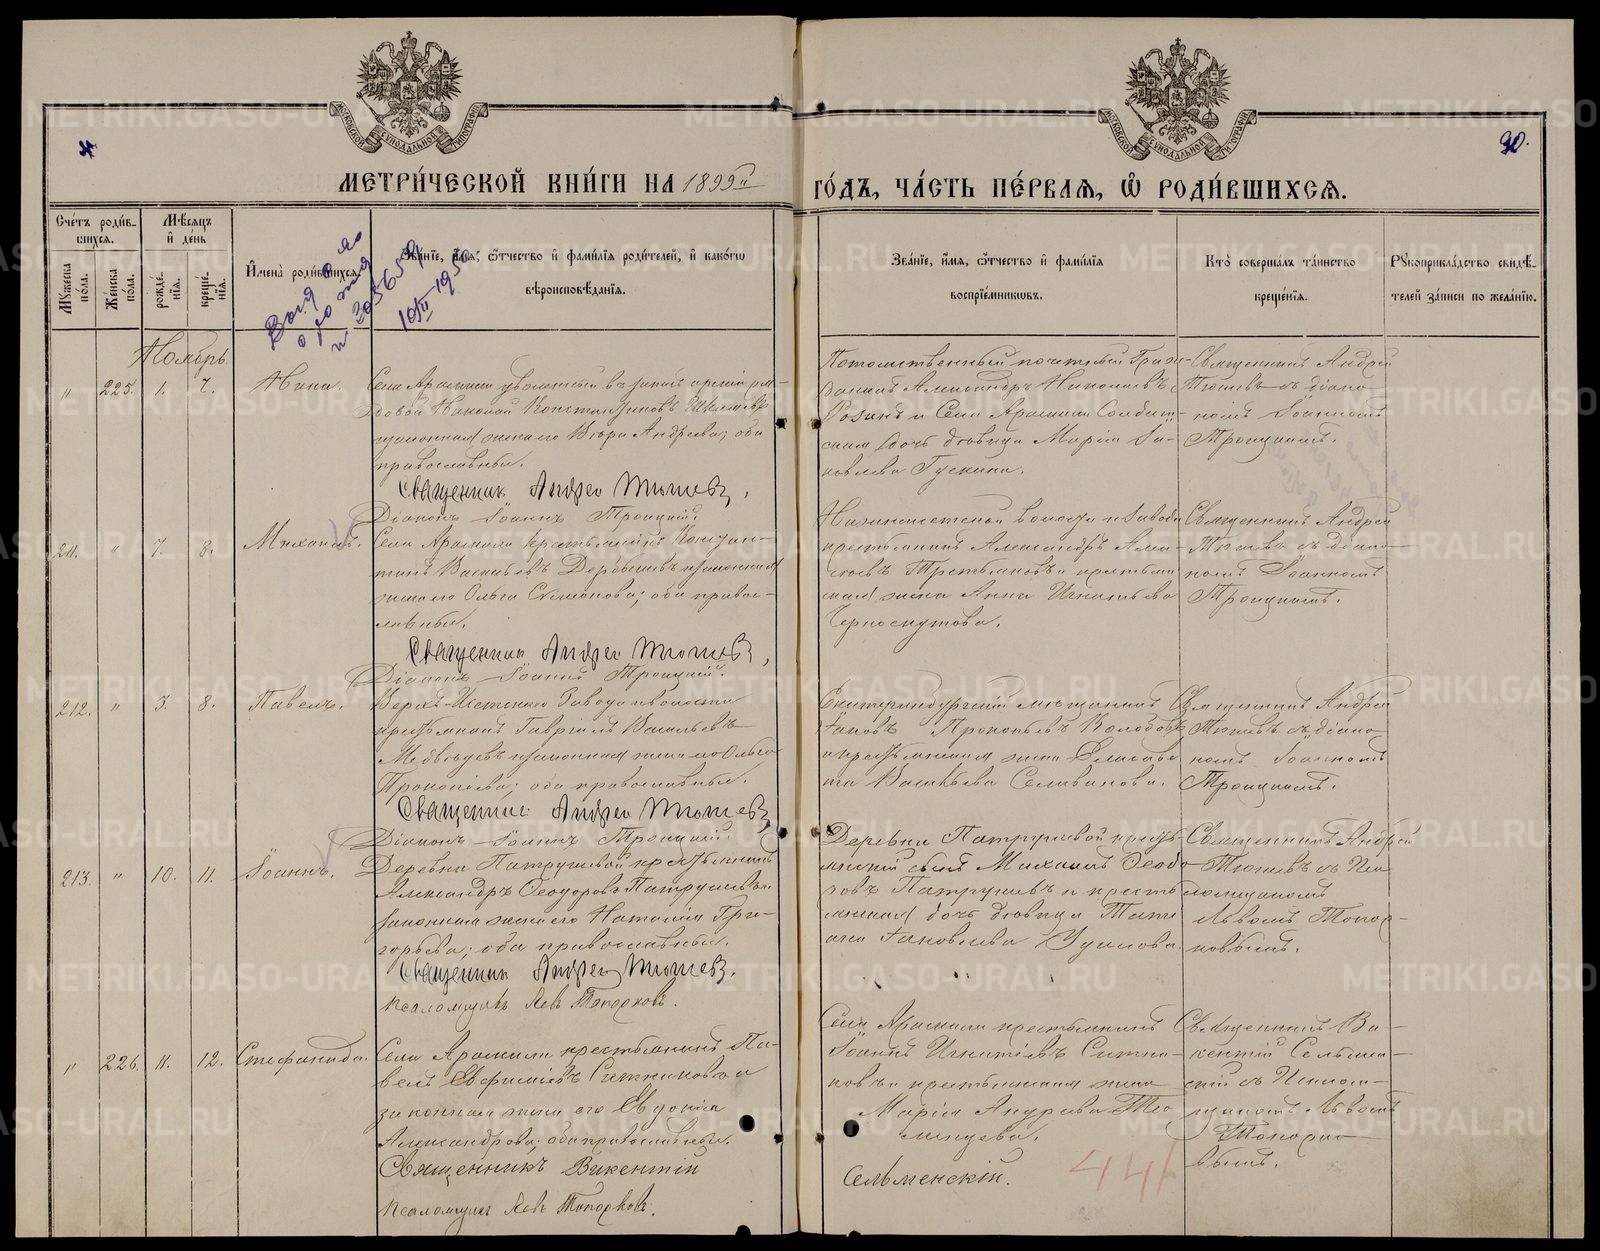 МЕТРИ́ЧЕСКОЙ КНИ́ГИ НА 1899й ГО́ДЪ, ЧА́СТЬ ПЕ́РВАЯ, Ѡ РОДИ́ВШИХСЯ.
30.
МОСКОВСКОЙ СѴНОДАЛЬНОЙ ТИПОГРАФІИ
МОСКОВСКОЙ СѴНОДАЛЬНОЙ ТИПОГРАФІИ
Сче́тъ роди́в-
шихся.
Мѣ́сяцъ
и҆ де́нь
Мꙋжеска по́ла.
Же́нска по́ла.
рожде́-
нїя.
креще́-
нїя.
И҆мена̀ роди́вшихся.
Зва́нїе, и҆́мя, ѻ҆́тчество и҆ фами́лїя роди́телей, и҆ како́гѡ
вѣроисповѣ́данїя.
Зва́нїе, и҆́мя, ѻ҆́тчество и҆ фами́лїя
воспрїе́мникѡвъ.
Кто̀ соверша́лъ та́инство
креще́нїя.
Рꙋкоприкла́дство свидѣ́-
телей за́писи по жела́нїю.
10/II-1950
Ноябрь.
" 225. 1. 7. Нина.
Села Арамили уволенный въ запасъ арміи ря-
довой Николай Константиновъ
законная жена его Вѣра Андреева; оба
православные.
Священник Андрей Тюшев,
Діаконъ Іоаннъ Троицкій.
Потомственный почетный Граж-
данинъ Александръ Николаевъ
и Села Арамили Солдат-
ская дочь дѣвица Марія Іа-
ковлева Гускина.
Священникъ Андрей
Тюшевъ съ діако-
номъ Іоанномъ
Троицкимъ.
211. " 7. 8. Михаилъ.
Села Арамили крестьянинъ Констан-
тинъ Васильевъ Дербышевъ и законная
жена его Ольга Симонова; оба правос-
лавные.
Священник Андрей Тюшев,
Діаконъ Іоаннъ Троицкій.
Нижнеисетской волости и завода
крестьянинъ Александръ
Третьяковъ и крестьян-
ская жена Анна Игнатьева
Черноскутова.
Священникъ Андрей
Тюшевъ съ діако-
номъ Іоанномъ
Троицкимъ.
212. " 3. 8. Павелъ.
Верхъ-Исетскаго завода и волости
крестьянинъ Гавріилъ Васильевъ
Медвѣдевъ и законная жена его Ольга
Прокопіева; оба православные.
Священник Андрей Тюшев,
Діаконъ Іоаннъ Троицкій.
Екатеринбургскій мѣщанинъ
Іаковъ Прокопьевъ Колобовъ
и крестьянская жена Елисаве-
та Васильева Селиванова.
Священникъ Андрей
Тюшевъ съ діако-
номъ Іоанномъ
Троицкимъ.
213. " 10. 11. Іоаннъ.
Деревни Патрушевой крестьянинъ
Александръ Ѳеодоровъ Патрушевъ и
законная жена его Наталія Гри-
горьева; оба православные.
Священник Андрей Тюшев.
Псаломщикъ Левъ Топорковъ.
Деревни Патрушевой кресть-
янскій сынъ Михаилъ Ѳеодо-
ровъ Патрушевъ и кресть-
янская дочь дѣвица Тати-
ана Іаковлева Ушакова.
Священникъ Андрей
Тюшевъ съ Пса-
ломщикомъ
Львомъ Топор-
ковымъ.
" 226. 11. 12. Стефанида.
Села Арамили крестьянинъ Па-
велъ Евфиміевъ Ситниковъ и
законная жена его Евдокія
Александрова; оба православные.
Священникъ Викентій
Сельменскій.
Псаломщик Левъ Топорковъ.
Села Арамили крестьянинъ
Іоаннъ Игнатіевъ Ситни-
ковъ и крестьянская жена
Марія Андреева
Священникъ Ви-
кентій Сельмен-
скій съ Псалом-
щикомъ Львомъ
Топорко-
вымъ.
441
METRIKI.GASO-URAL.RU